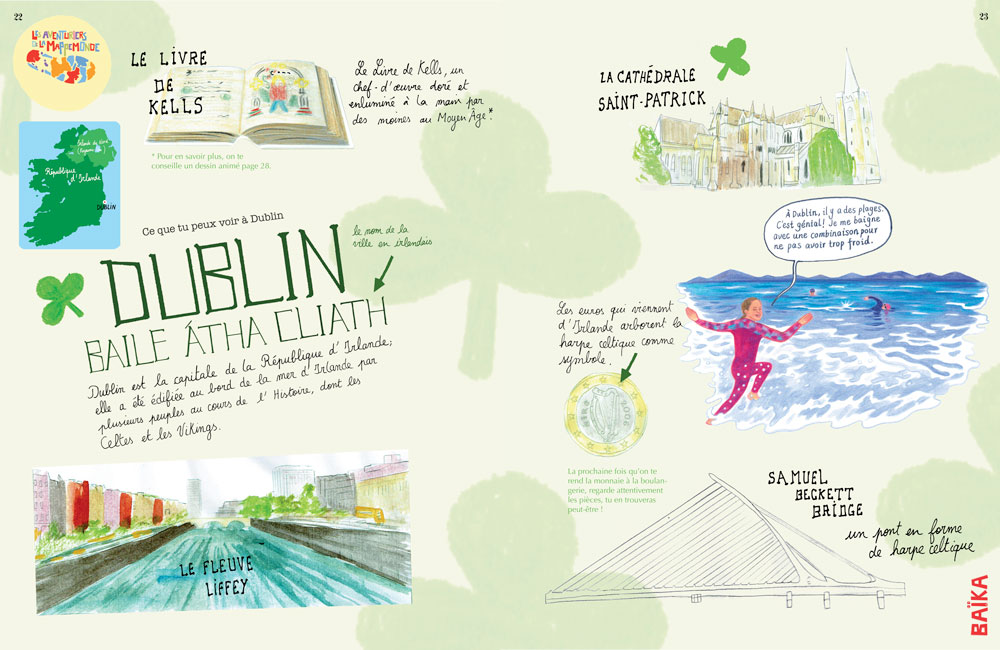 22
LES AVENTURIERS
DE LA MAPPEMONDE
LE LIVRE
DE
KELLS
Le Livre de Kells, un
chef-d'œuvre doré et
enluminé à la main par
des moines au Moyen Âge*.
* Pour en savoir plus, on te
conseille un dessin animé page 28.
Irlande du Nord
(Royaume-Uni)
République
d'Irlande
DUBLIN
Ce que tu peux voir à Dublin
DUBLIN
le nom de la
ville en irlandais
BAILE ÁTHA CLIATH
Dublin est la capitale de la République d'Irlande;
elle a été édifiée au bord de la mer d'Irlande par
plusieurs peuples au cours de l'Histoire, dont les
Celtes et les Vikings.
LE FLEUVE
LIFFEY
23
LA CATHÉDRALE
SAINT-PATRICK
À Dublin, il y a des plages.
C'est génial! Je me baigne
avec une combinaison pour
ne pas avoir trop froid.
Les euros qui viennent
d'Irlande arborent la
harpe celtique comme
symbole.
EIRE
2006
La prochaine fois qu'on te
rend la monnaie à la boulan-
gerie, regarde attentivement
les pièces, tu en trouveras
peut-être !
SAMUEL
BECKETT
BRIDGE
un pont en forme
de harpe celtique
BAÏKA